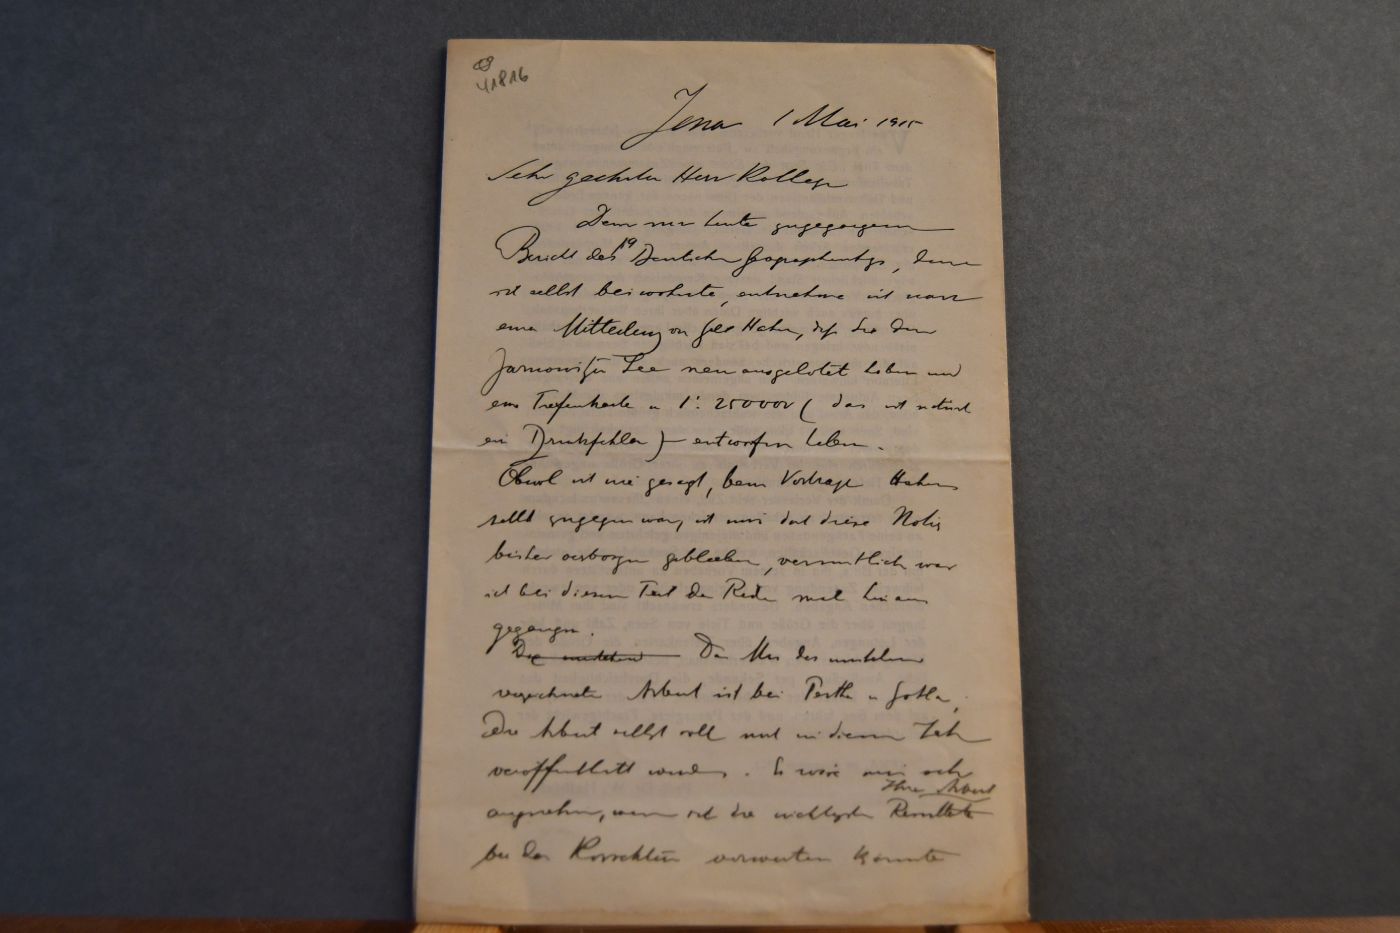 41816
Jena 1 Mai 1915
Sehr geehrter Herr Kollege
Dem mir heute zugegangenen
Bericht des 19 Deutschen Geographentags, dem
ich selbst beiwohnte, entnehme ich aus
einer Mitteilung von Hahn, daß Sie den
See neu ausgelotet haben und
eine Tiefenkarte in 1:250000 (das ist natürl
ein Druckfehler) entworfen haben.
Obwol ich wie gesagt, beim Vortrage Hahns
selbst zugegen war, ist mir doch diese Notiz
bisher verborgen geblieben, vermutlich war
ich bei diesem Teil der Rede mal hinaus
gegangen.
Das Ms des
verzeichneten Arbeit ist bei Perthes in Gotha,
Die Arbeit selbst soll noch in diesem Jahr
veröffentlicht werden. Es wäre mir sehr
Ihrer Arbeit
angenehm, wenn ich die wichtigsten Resultate
bei der Korrektur verwerten könnte